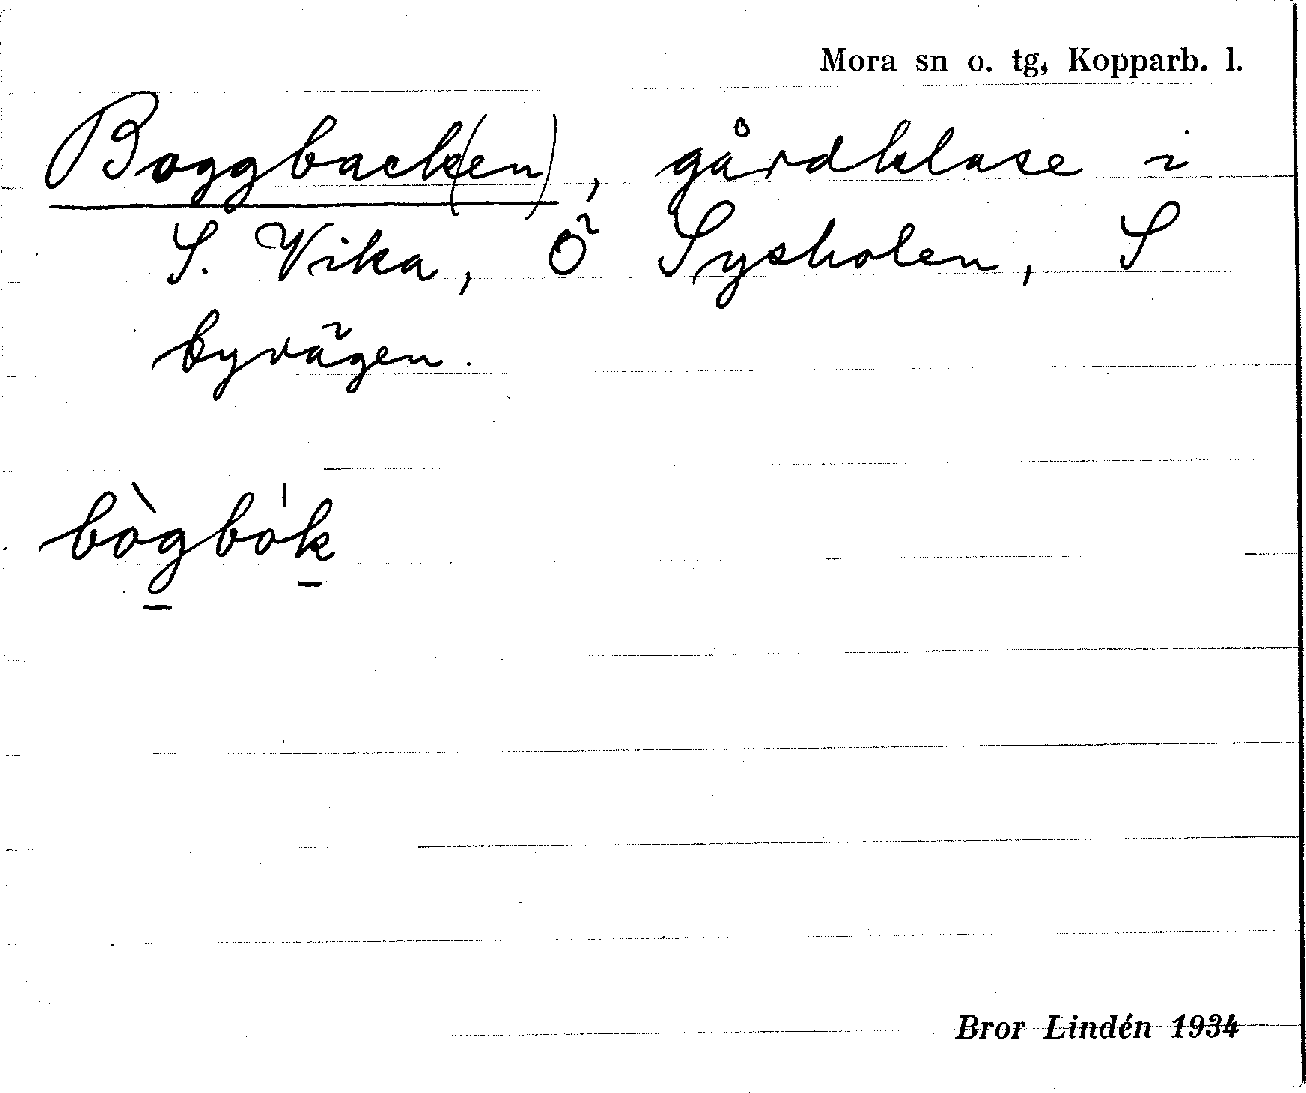 Mora sn o. tg, Kopparb. l.
Boggback(en), gårdklase i
S. Vika, Ö Sysholen, S
byvägen.
bògbòk
Bror Lindén 1934